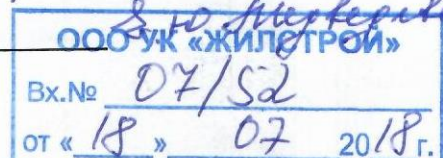 ООО УК «ЖИЛСТРОЙ»
Вх.№ 07/52
от « 18 » 07 2018 г.